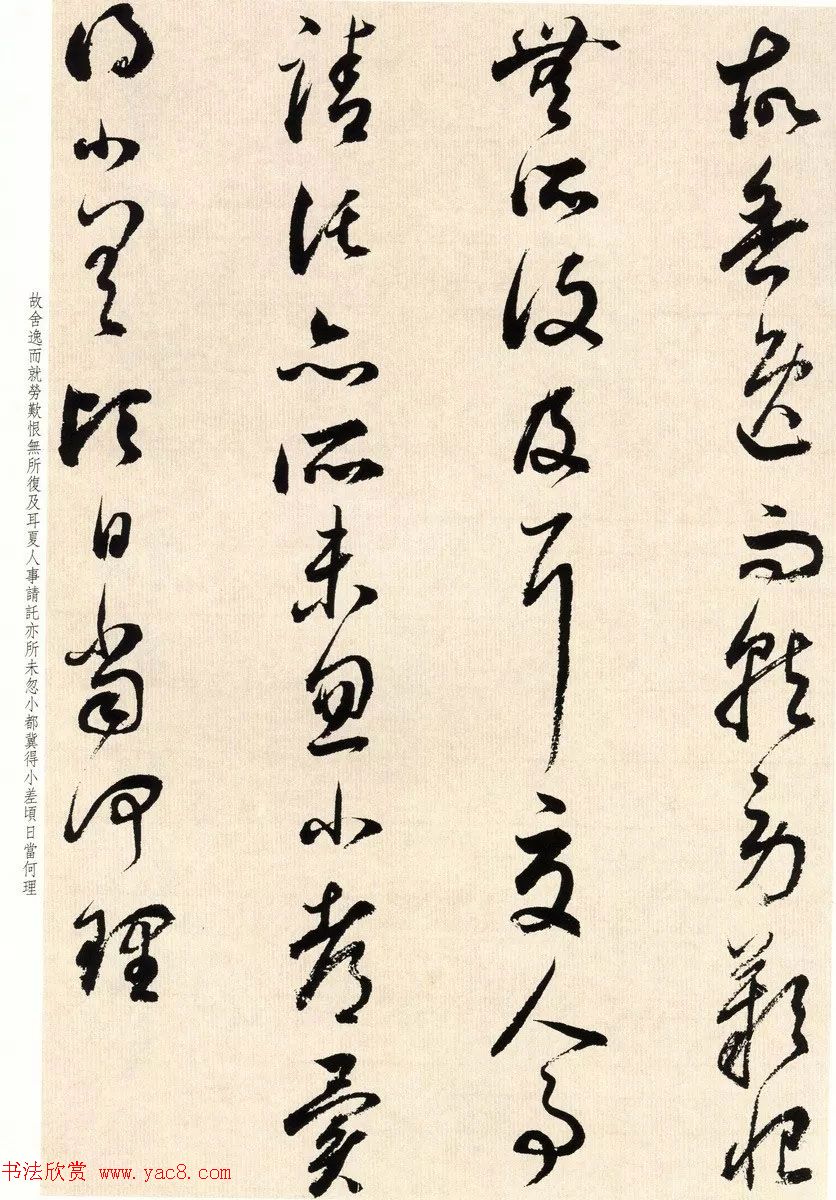 故舍逸而就勞歎恨
無所復及耳夏人事
請託亦所未忽小都冀
得小差頃日當何理
故舍逸而就勞歎恨無所復及耳夏人事請託亦所未忽小都冀得小差頃日當何理
书法欣赏 www.yac8.com